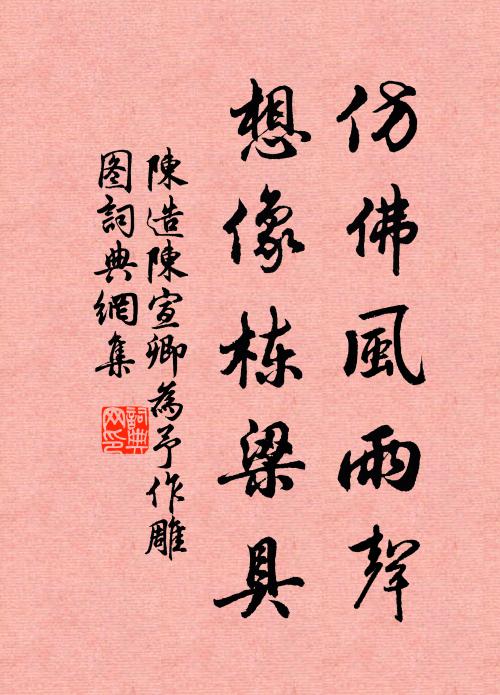 仿佛風雨聲
想像栋梁具
陳造陳宣卿為予作雕
图詞典網集
詞典网印